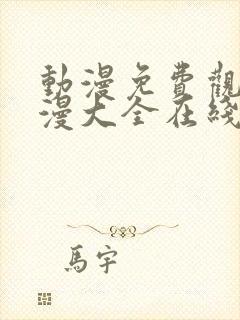 動漫免費觀
漫大全在綫
馬宇